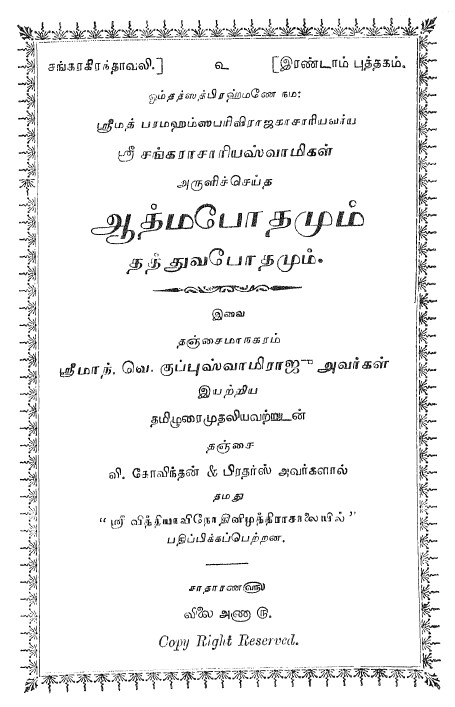 சங்கரகிரந்தாவலி.] ௨ [இரண்டாம் புத்தகம்.
ஓம்தத்ஸத்பிரஹ்மணே நம:
ஸ்ரீமத் பரமஹம்ஸபரிவிராஜகாசாரியவர்ய
ஸ்ரீ சங்கராசாரியஸ்வாமிகள்
அருளிச்செய்த
ஆத்மபோதமும்
தத்துவபோதமும்.
இவை
தஞ்சைமாநகரம்
ஸ்ரீமாந். வெ. குப்புஸ்வாமிராஜு அவர்கள்
இயற்றிய
தமிழுரைமுதலியவற்றுடன்
தஞ்சை
வி. கோவிந்தன் & பிரதர்ஸ் அவர்களால்
தமது
“ ஸ்ரீ வித்தியாவிநோதினிமுத்திராசாலையில் ”
பதிப்பிக்கப்பெற்றன.
சாதாரண௵
விலை அணா ௫.
Copy Right Reserved.